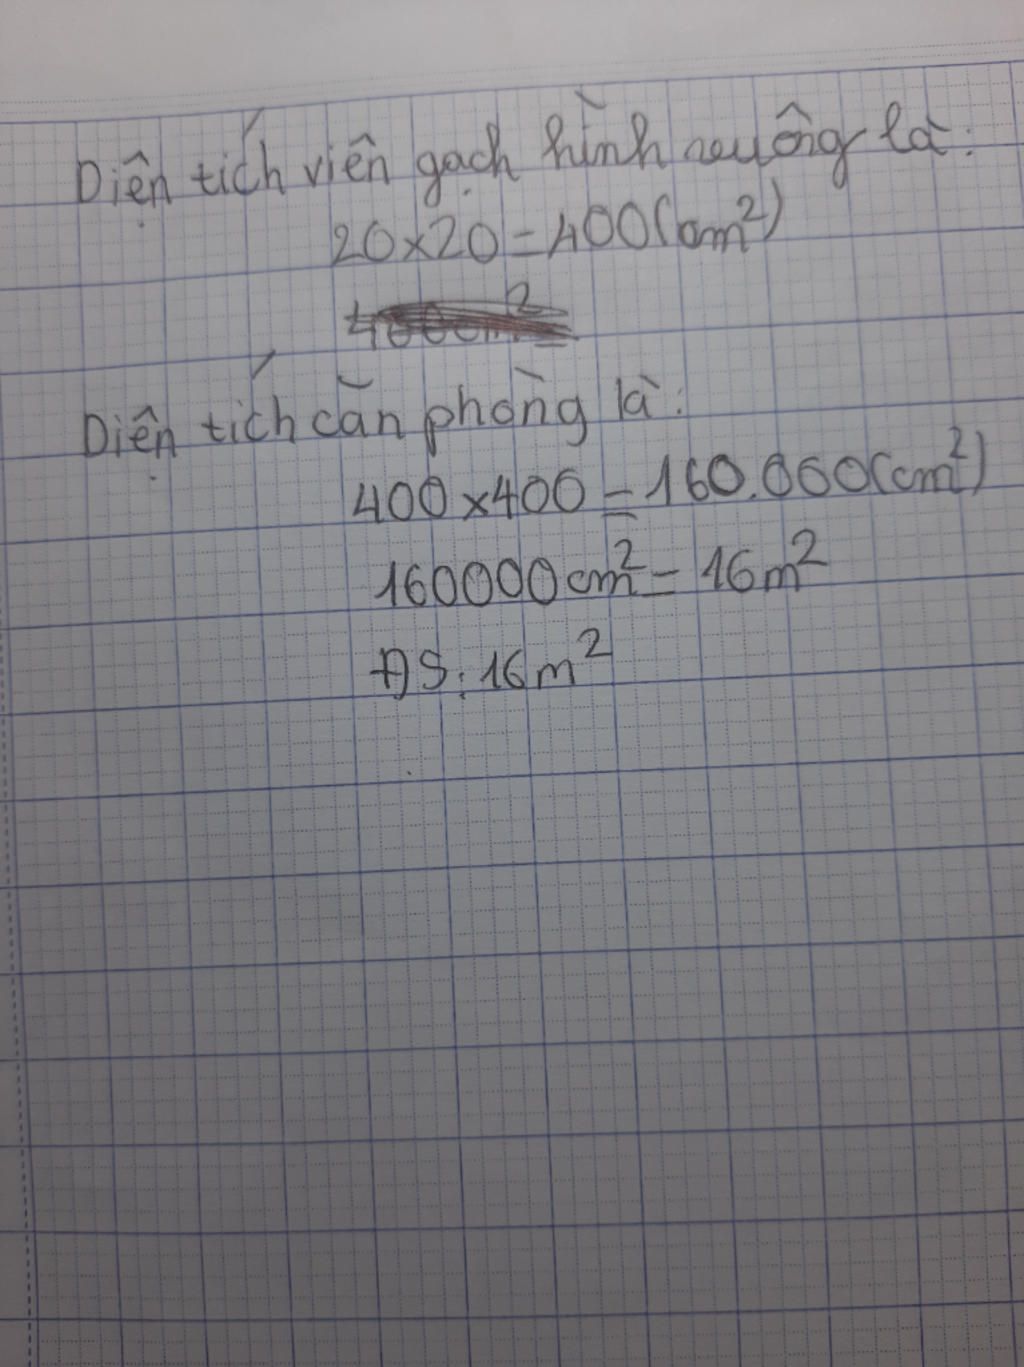 Diện tích viên gạch hình vuông là:
20×20=400(cm²)
Diện tích căn phòng là:
400×400=160.000(cm²)
160000cm²=16m²
ĐS:16m²